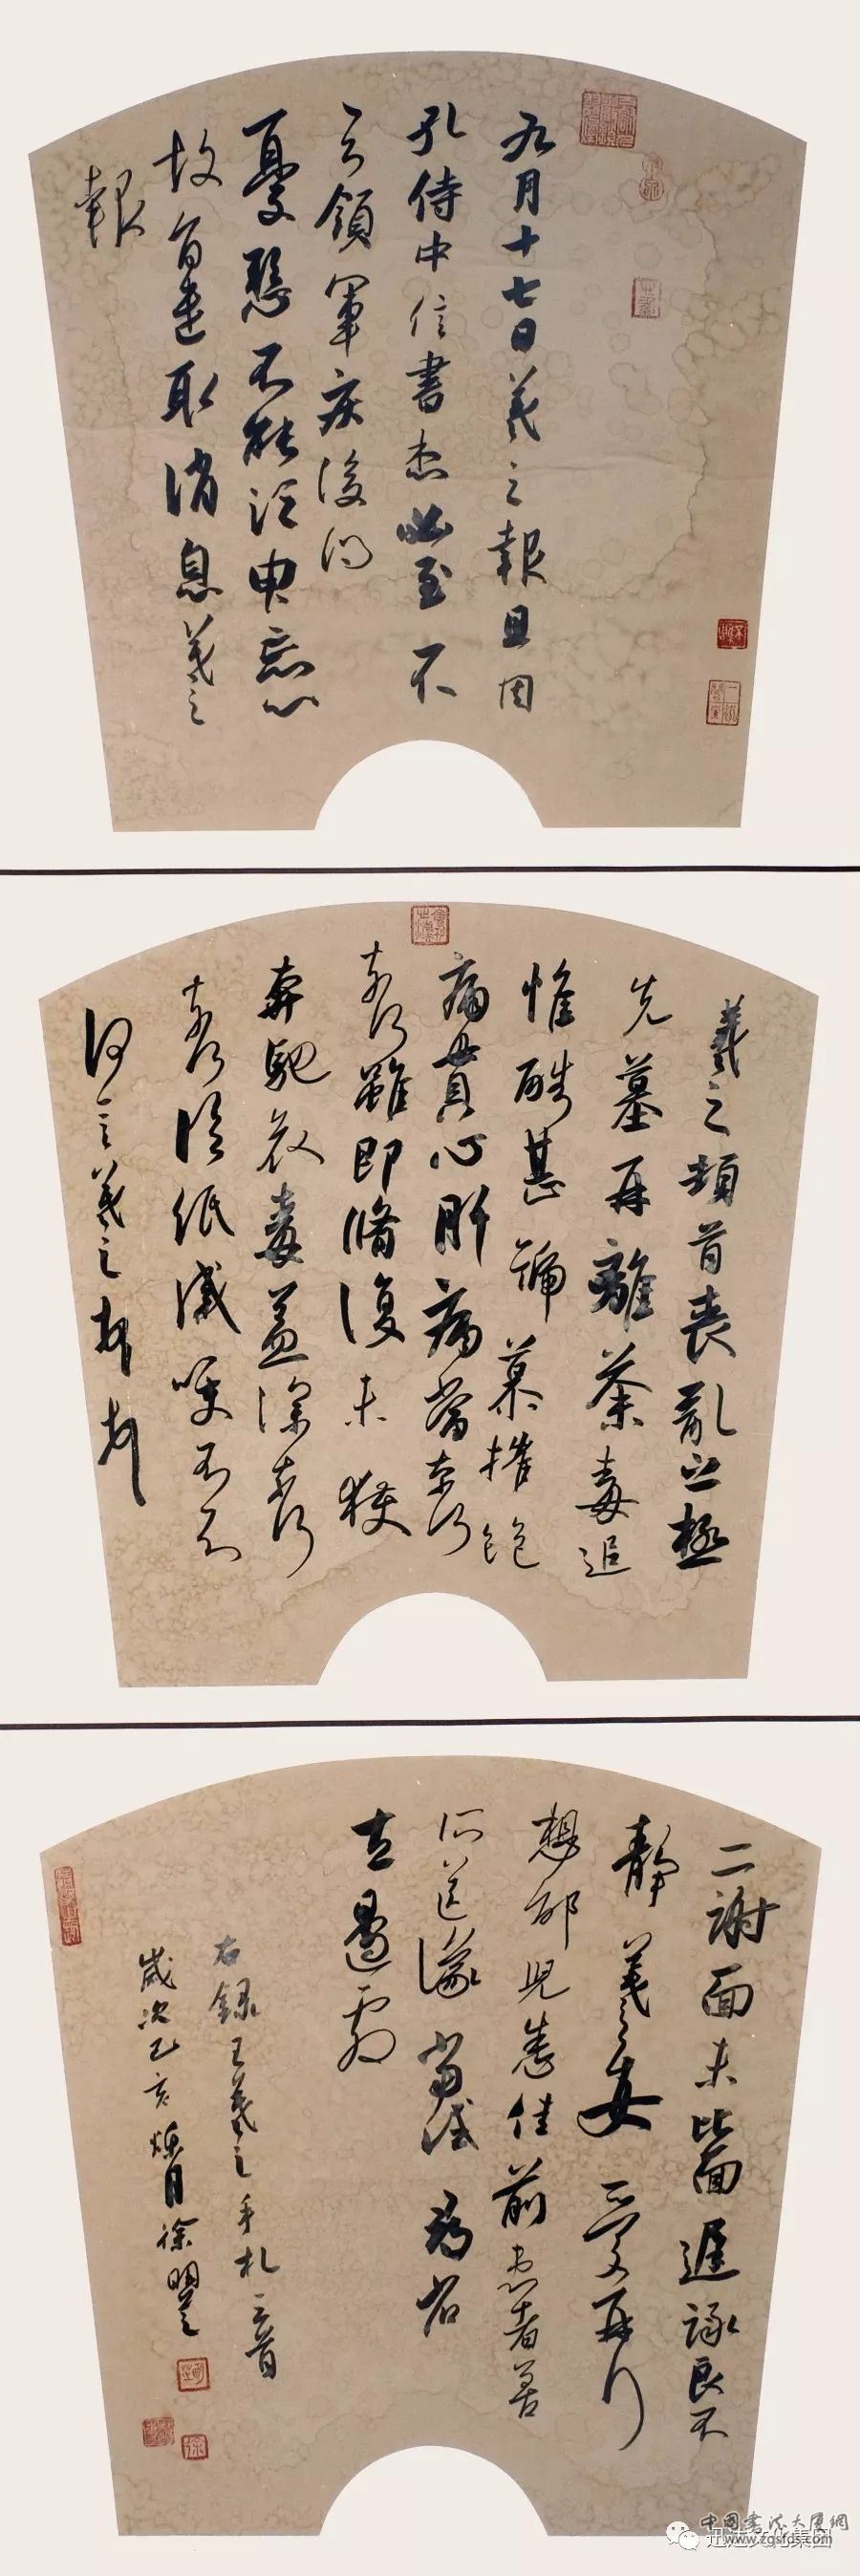 九月十七日羲之報且因
孔侍中信書想必至不
知領軍疾後問
憂懸不能須臾忘心
故旨遣取消息羲之
報
羲之頓首喪亂之極
先墓再離荼毒追
惟酷甚號慕摧絕
痛貫心肝痛當奈何
奈何雖即脩復未獲
奔馳哀毒益深奈何
奈何臨紙感哽不知
何言羲之頓首
二謝面未比面遲詠良不
靜羲之女愛再
想邰兒悉佳前患者善
所送議當試尋省
左邊劇
右錄王羲之手札三首
歲次乙亥
月徐
中国书法大厦網
www.zgsfds.com
迅达文化集团